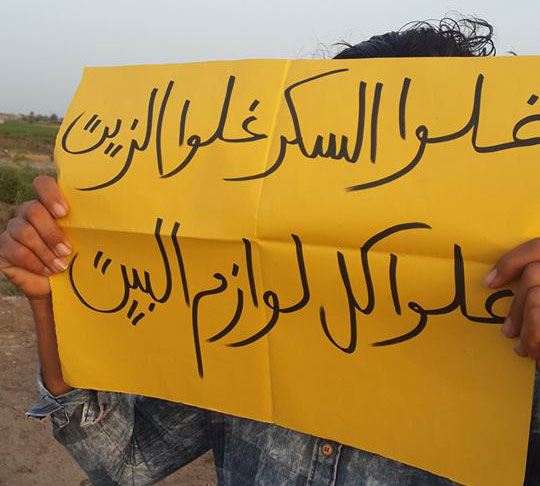 غلوا السكر غلوا الزيت
غلوا كل لوازم البيت